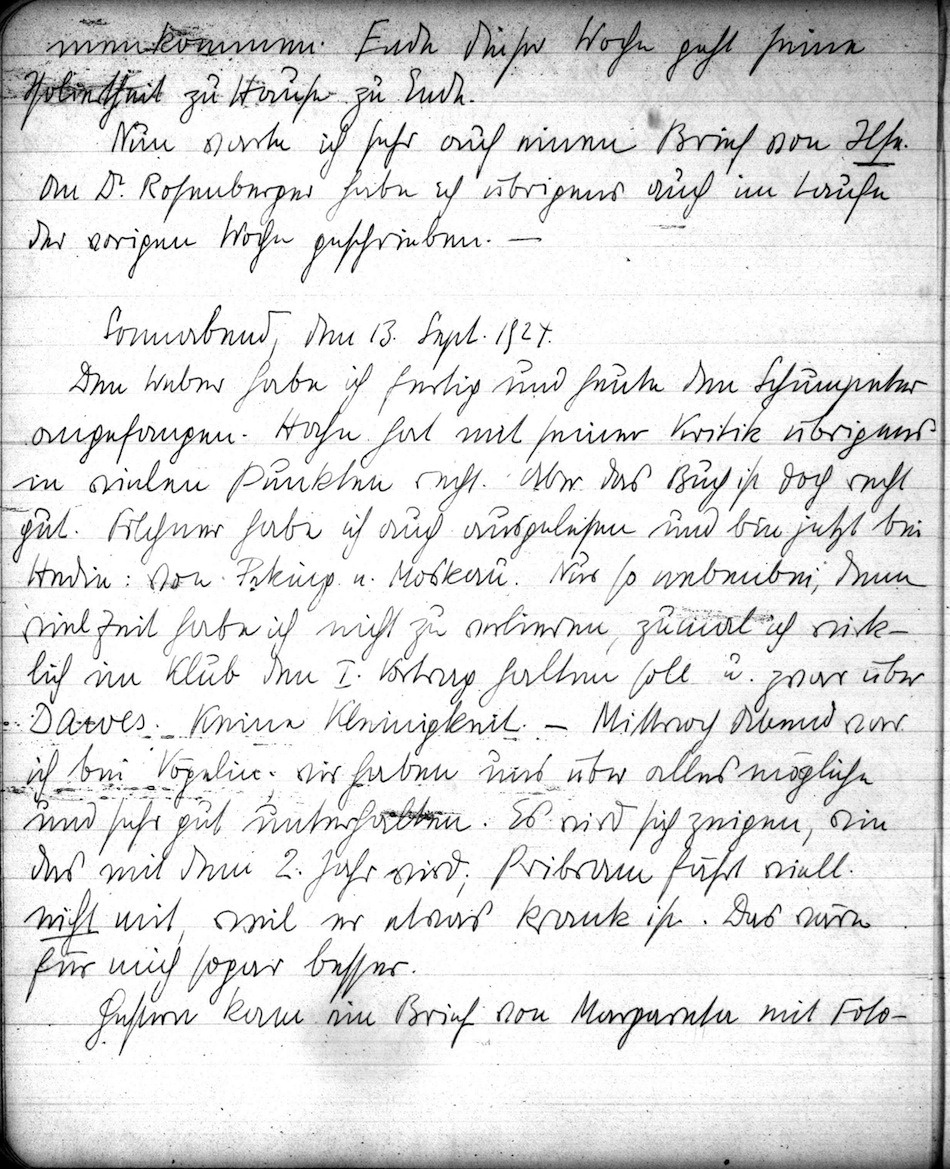 menkommen. Ende dieser Woche geht seine
zu Hause zu Ende.
Nun warte ich sehr auf einen Brief von Ilse.
An Dr. Rosenberger habe ich übrigens auch im Laufe
der vorigen Woche geschrieben. —
Sonnabend, den 13. Sept. 1924.
Den Weber habe ich fertig und heute den Schumpeter
angefangen. Hat mit seiner Kritik übrigens
in vielen Punkten recht. Aber das Buch ist doch recht
gut. Filchner habe ich auch ausgelesen und bin jetzt bei
Hedin: von Peking u. Moskau. Nur so nebenbei, denn
viel Zeit habe ich nicht zu verlieren, zumal ich wirk-
lich im Klub den I. Vortrag halten soll u. zwar über
Dawes. Keine Kleinigkeit. — Mittwoch Abend war
ich bei Vögelin. Wir haben uns über alles mögliche
und sehr gut unterhalten. Es wird sich zeigen, wie
das mit dem 2. Jahr wird; Pribram fährt viell.
nicht mit, weil er etwas krank ist. Das wäre
für mich sogar besser.
Gestern kam ein Brief von Margareta mit Foto-